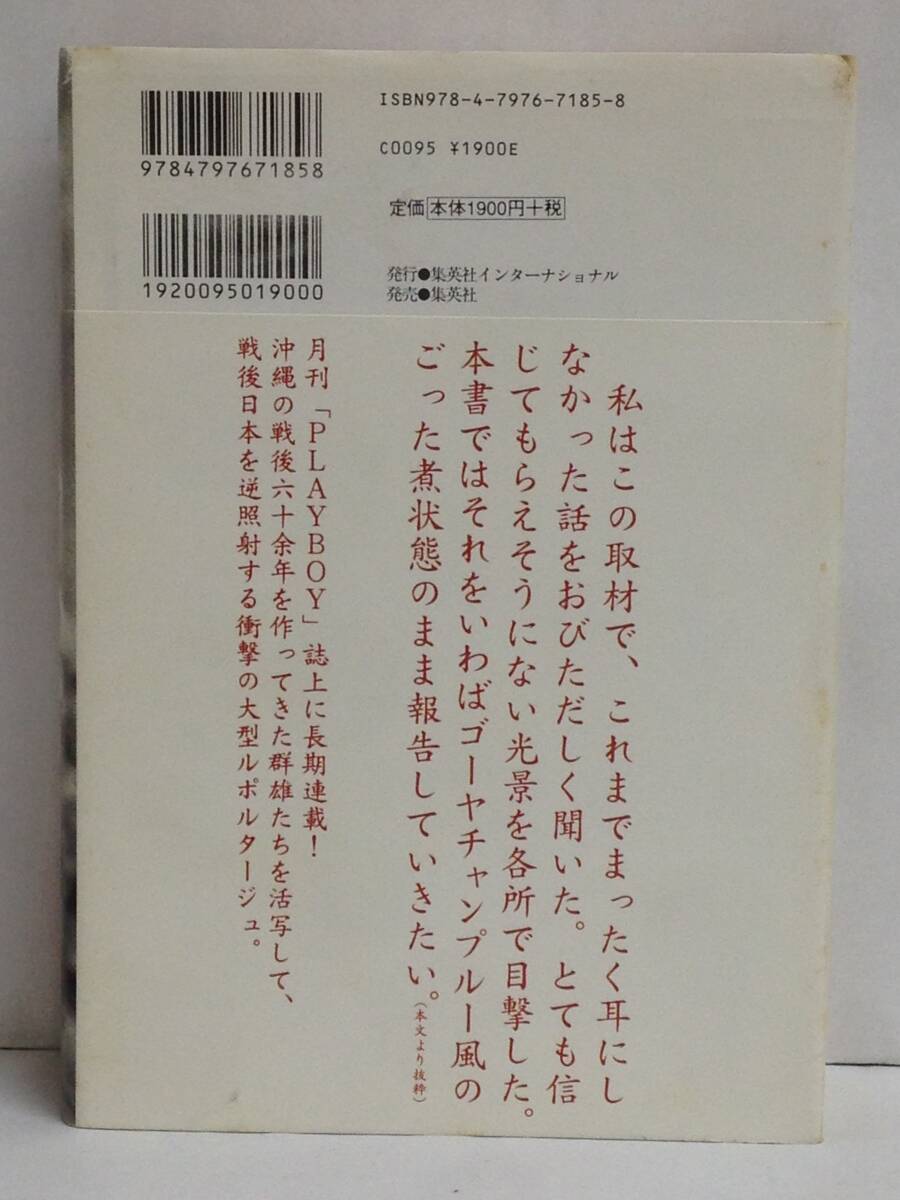 ISBN978-4-7976-7185-8
9784797671858
C0095 ¥1900E
定価 本体1900円+税
1920095019000
発行●集英社インターナショナル
発売●集英社
私はこの取材で、これまでまったく耳にし
なかった話をおびただしく聞いた。とても信
じてもらえそうにない光景を各所で目撃した。
本書ではそれをいわばゴーヤチャンプルー風の
ごった煮状態のまま報告していきたい。(本文より抜粋)
月刊「PLAYBOY」誌上に長期連載!
沖縄の戦後六十余年を作ってきた群雄たちを活写して、
戦後日本を逆照射する衝撃の大型ルポルタージュ。